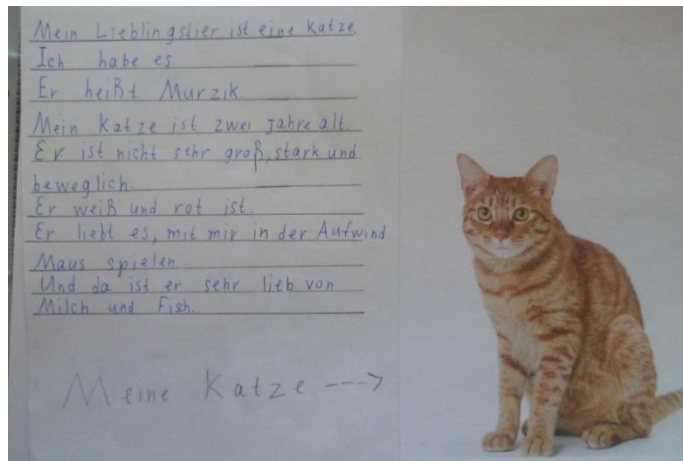 Mein Lieblingstier ist eine Katze.
Ich habe es
Er heißt Murzik
Mein Katze ist zwei Jahre alt
Er ist nicht sehr groß, stark und
beweglich.
Er weiß und rot ist.
Er liebt es, mit mir in der Aufwind
Maus spielen
Und da ist er sehr lieb von
Milch und Fish.
Meine Katze --->